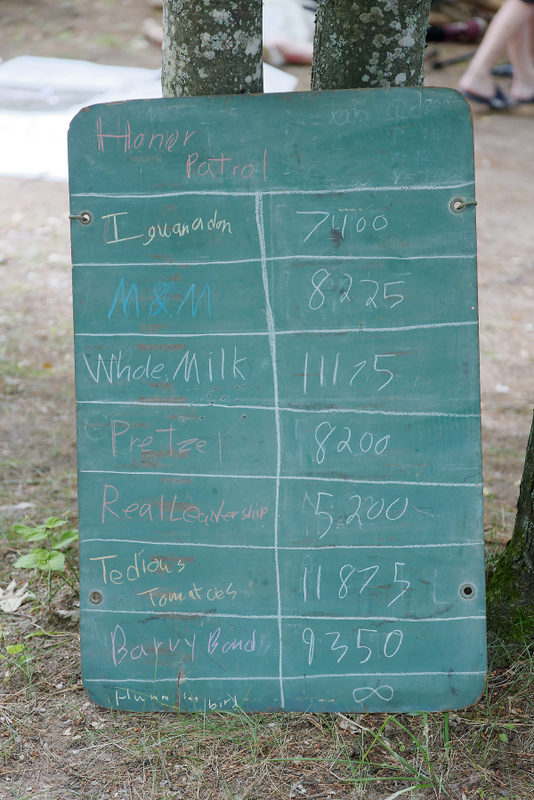 Honor
Patrol
Iguanadon 7400
M&M 8225
Whole Milk 11175
Pretzel 8200
Real Leadership 5200
Tedious
Tomatoes 11875
Barvy Band 9350
∞